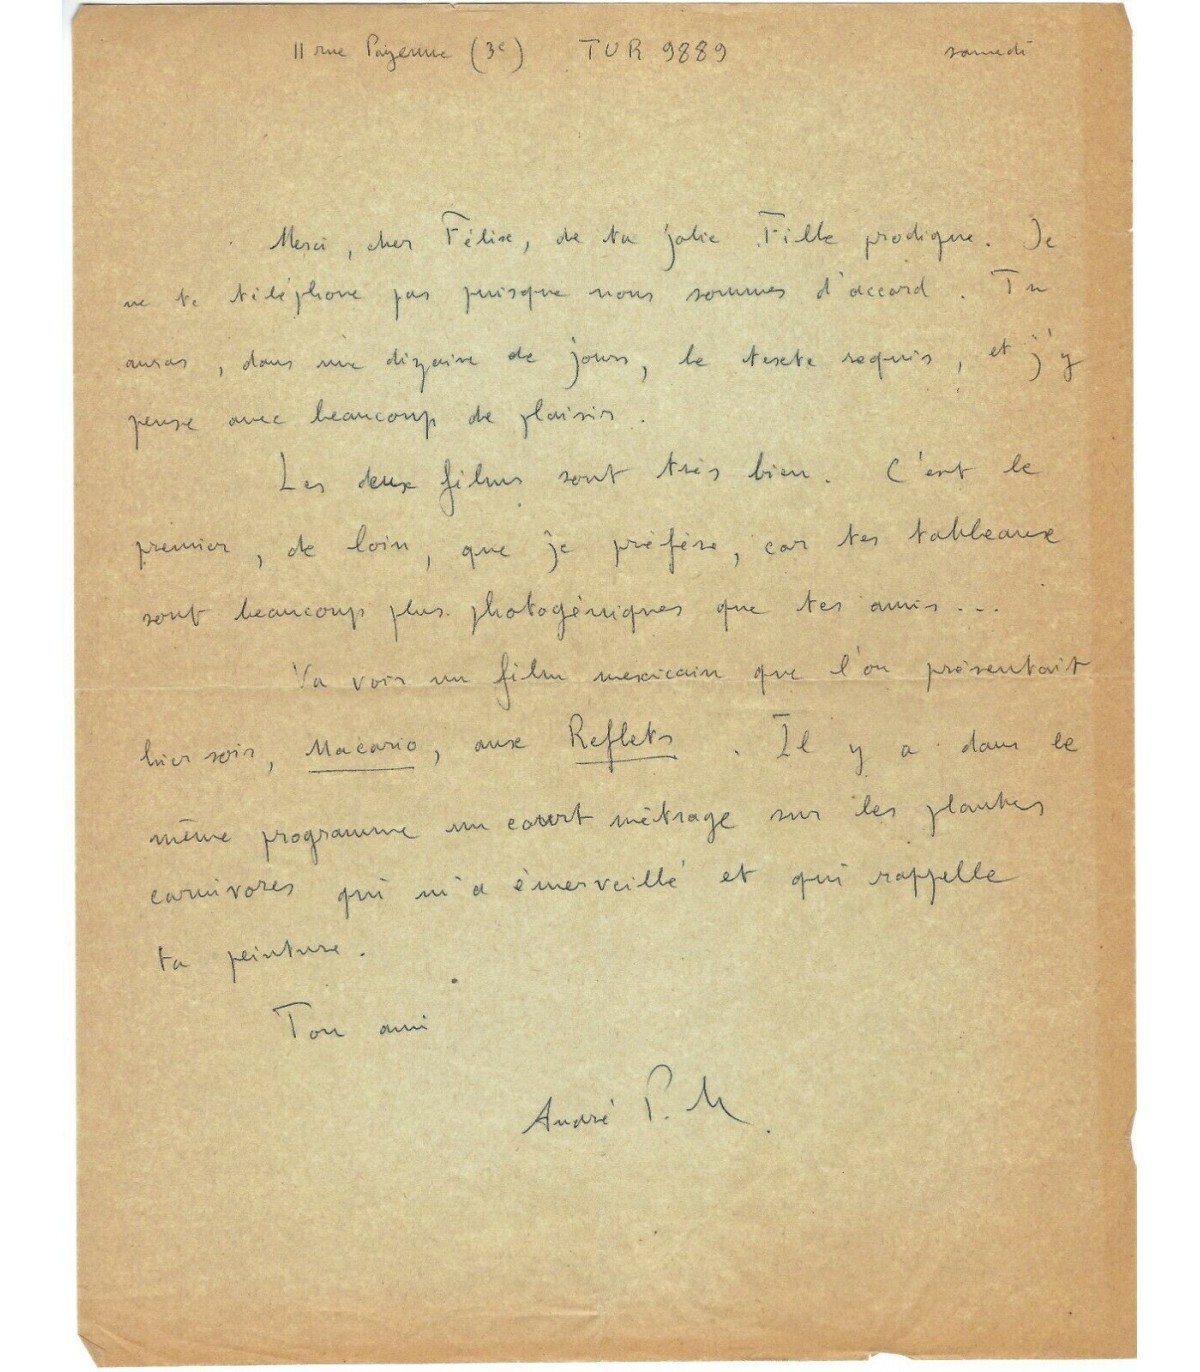 11 rue Payenne (3e) TUR 9889 samedi
Merci, cher Félixe, de ta jolie Fille prodigue. Je
ne te téléphone pas puisque nous sommes d'accord. Tu
auras, dans une dizaine de jours, le texte requis, et j'y
pense avec beaucoup de plaisir.
Les deux films sont très bien. C'est le
premier, de loin, que je préfère, car tes tableaux
sont beaucoup plus photogéniques que tes amis...
Va voir un film mexicain que l'on présentait
hier soir, Macario, aux Reflets. Il y a dans le
même programme un court métrage sur les plantes
carnivores qui m'a émerveillé et qui rappelle
ta peinture.
Ton ami
André P. M.